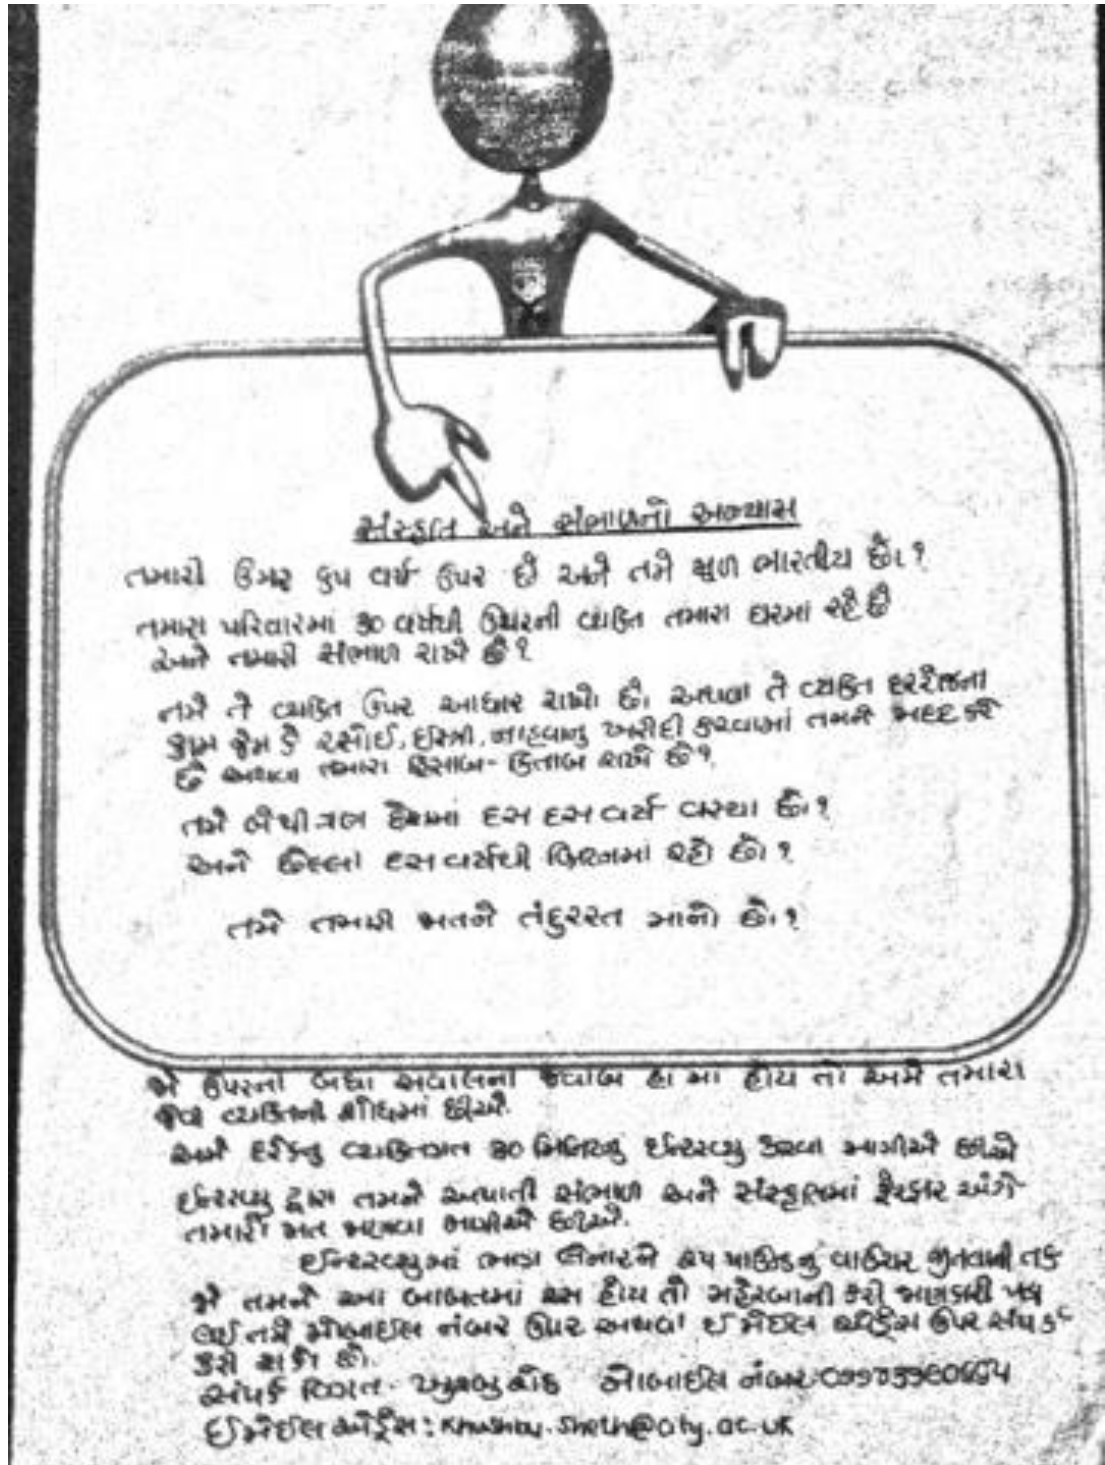 સંસ્કૃતિ અને સંભાળનો અભ્યાસ
તમારી ઉંમર ૬૫ વર્ષ ઉપર છે અને તમે મુળ ભારતીય છો?
તમારા પરિવારમાં ૩૦ વર્ષથી ઉપરની વ્યક્તિ તમારા ઘરમાં રહે છે
અને તમારી સંભાળ રાખે છે?
તમે તે વ્યક્તિ ઉપર આધાર રાખો છો અથવા તે વ્યક્તિ દરરોજના
કામ જેમ કે રસોઈ, ઈસ્ત્રી, નાહવાનુ ખરીદી કરવામાં તમને મદદ કરે
છે અથવા તમારા હિસાબ-કિતાબ રાખે છે?
તમે બેથી ત્રણ દેશમાં દસ દસ વર્ષ વસ્યા છો?
અને છેલ્લાં દસ વર્ષથી બ્રિટનમાં રહો છો?
તમે તમારી જાતને તંદુરસ્ત માનો છો?
જો ઉપરના બધા સવાલના જવાબ હા મા હોય તો અમે તમારા
જેવી વ્યક્તિની શોધમાં છીએ.
અમે દરેકનુ વ્યક્તિગત ૩૦ મિનિટનુ ઈન્ટરવ્યુ કરવા માગીએ છીએ
ઈન્ટરવ્યુ દ્વારા તમને અપાતી સંભાળ અને સંસ્કૃતિમાં ફેરફાર અંગે
તમારો મત જાણવા માગીએ છીએ.
ઈન્ટરવ્યુમાં ભાગ લેનારને પાઉન્ડનું વાઉચર જીતવાની તક
જો તમને આ બાબતમાં રસ હોય તો મહેરબાની કરી જાણકારી પત્ર
લઈ તમે મોબાઈલ નંબર ઉપર અથવા ઈ મેઈલ એડ્રેસ ઉપર સંપર્ક
કરી શકો છો.
સંપર્ક વિગત - ખુશ્બુ શેઠ મોબાઈલ નંબર:
ઈમેઈલ એડ્રેસ: Khushbu.Sheth@city.ac.uk